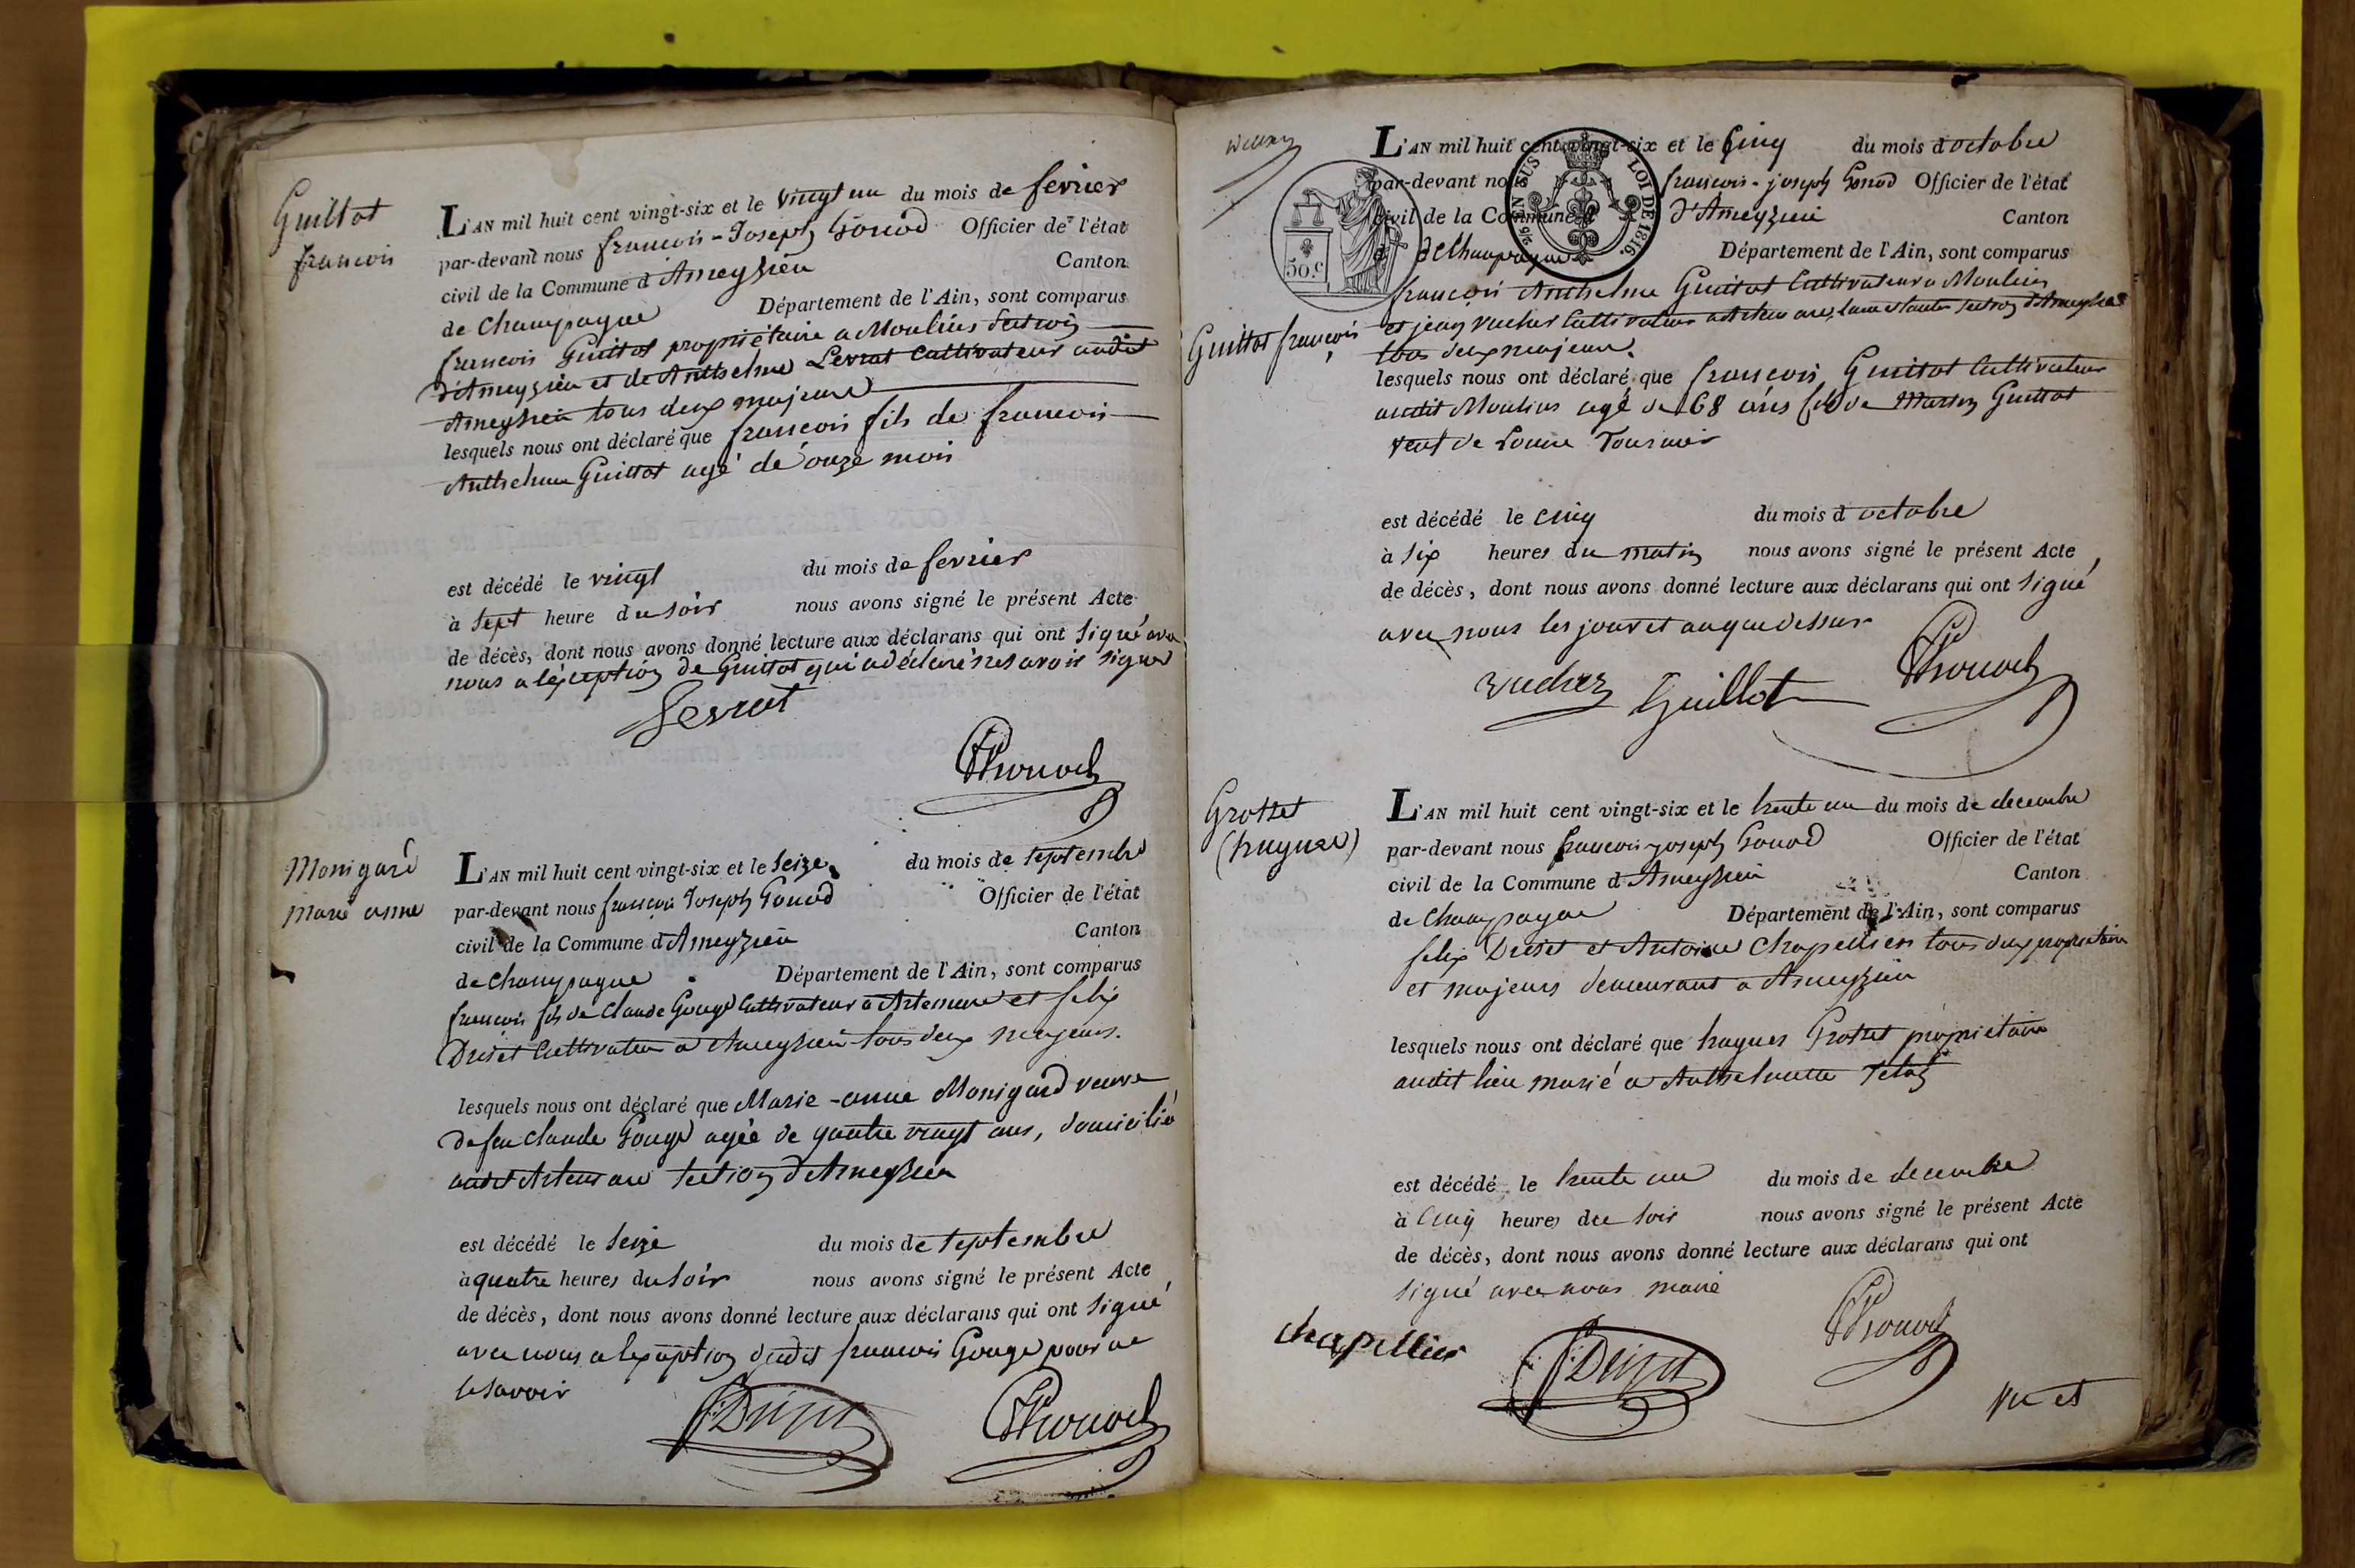 Guillot
francois
L'AN mil huit cent vingt-six et le vingt un du mois de fevrier
par-devant nous francois-Joseph Gonod Officier de l'état
civil de la Commune d'Ameyzieu Canton
de Champagne Département de l'Ain, sont comparus
francois Guillot propriétaire a Moulins section
d'Ameyzieu et de Anthelme Levrat Cultivateur audit
Ameyzieu tous deux majeure
lesquels nous ont déclaré que francois fils de francois
Anthelme Guillot agé de onze mois
est décédé le vingt du mois de fevrier
à sept heure du soir nous avons signé le présent Acte
de décès, dont nous avons donné lecture aux déclarans qui ont signé avec
nous a l'éxception de Guillot qui a déclaré ne savoir signer
Levrat
Gonod
Monigard
Marie anne
L'AN mil huit cent vingt-six et le seize du mois de septembre
par-devant nous francois Joseph Gonod Officier de l'état
civil de la Commune d'Ameyzieu Canton
de Champagne Département de l'Ain, sont comparus
francois fils de Claude Gouge Cultivateur a Artemare et felix
Driset Cultivateur a Ameyzieu tous deux majeurs.
lesquels nous ont déclaré que Marie-anne Monigard veuve
de feu Claude Gouge agée de quatre vingt ans, domicilié
audit Artemare section d'Ameyzieu
est décédé le seize du mois de septembre
à quatre heures du soir nous avons signé le présent Acte
de décès, dont nous avons donné lecture aux déclarans qui ont signé
avec nous a l'exception dudit francois Gouge pour ne
le savoir
Driset
Gonod
L'AN mil huit cent vingt-six et le Cinq du mois d'octobre
par-devant nous francois-joseph Gonod Officier de l'état
civil de la Commune d'Ameyzieu Canton
de Champagne Département de l'Ain, sont comparus
EN SUS LOI DE 1816.
50.c
francois Anthelme Guillot Cultivateur a Moulins
Guillot francois
et jean vucher Cultivateur a Artemare, section d'Ameyzieu
tous deux majeure.
lesquels nous ont déclaré que francois Guillot Cultivateur
audit Moulins agé de 68 ans fils de Guillot
veuf de Louise Tournier
est décédé le cinq du mois d'octobre
à six heures du matin nous avons signé le présent Acte
de décès, dont nous avons donné lecture aux déclarans qui ont signé
avec nous les jour et an que dessus
vucher Guillot Gonod
Grosset
(hugues)
L'AN mil huit cent vingt-six et le trente un du mois de decembre
par-devant nous francois-joseph Gonod Officier de l'état
civil de la Commune d'Ameyzieu Canton
de Champagne Département de l'Ain, sont comparus
felix Driset et Antoine Chapellier tous deux propriétaire
et majeurs demeurant a Ameyzieu
lesquels nous ont déclaré que hugues Grosset propriétaire
audit lieu marié a Anthelmette
est décédé le trente un du mois de decembre
à cinq heures du soir nous avons signé le présent Acte
de décès, dont nous avons donné lecture aux déclarans qui ont
signé avec nous maire
chapellier Driset Gonod
Vu et